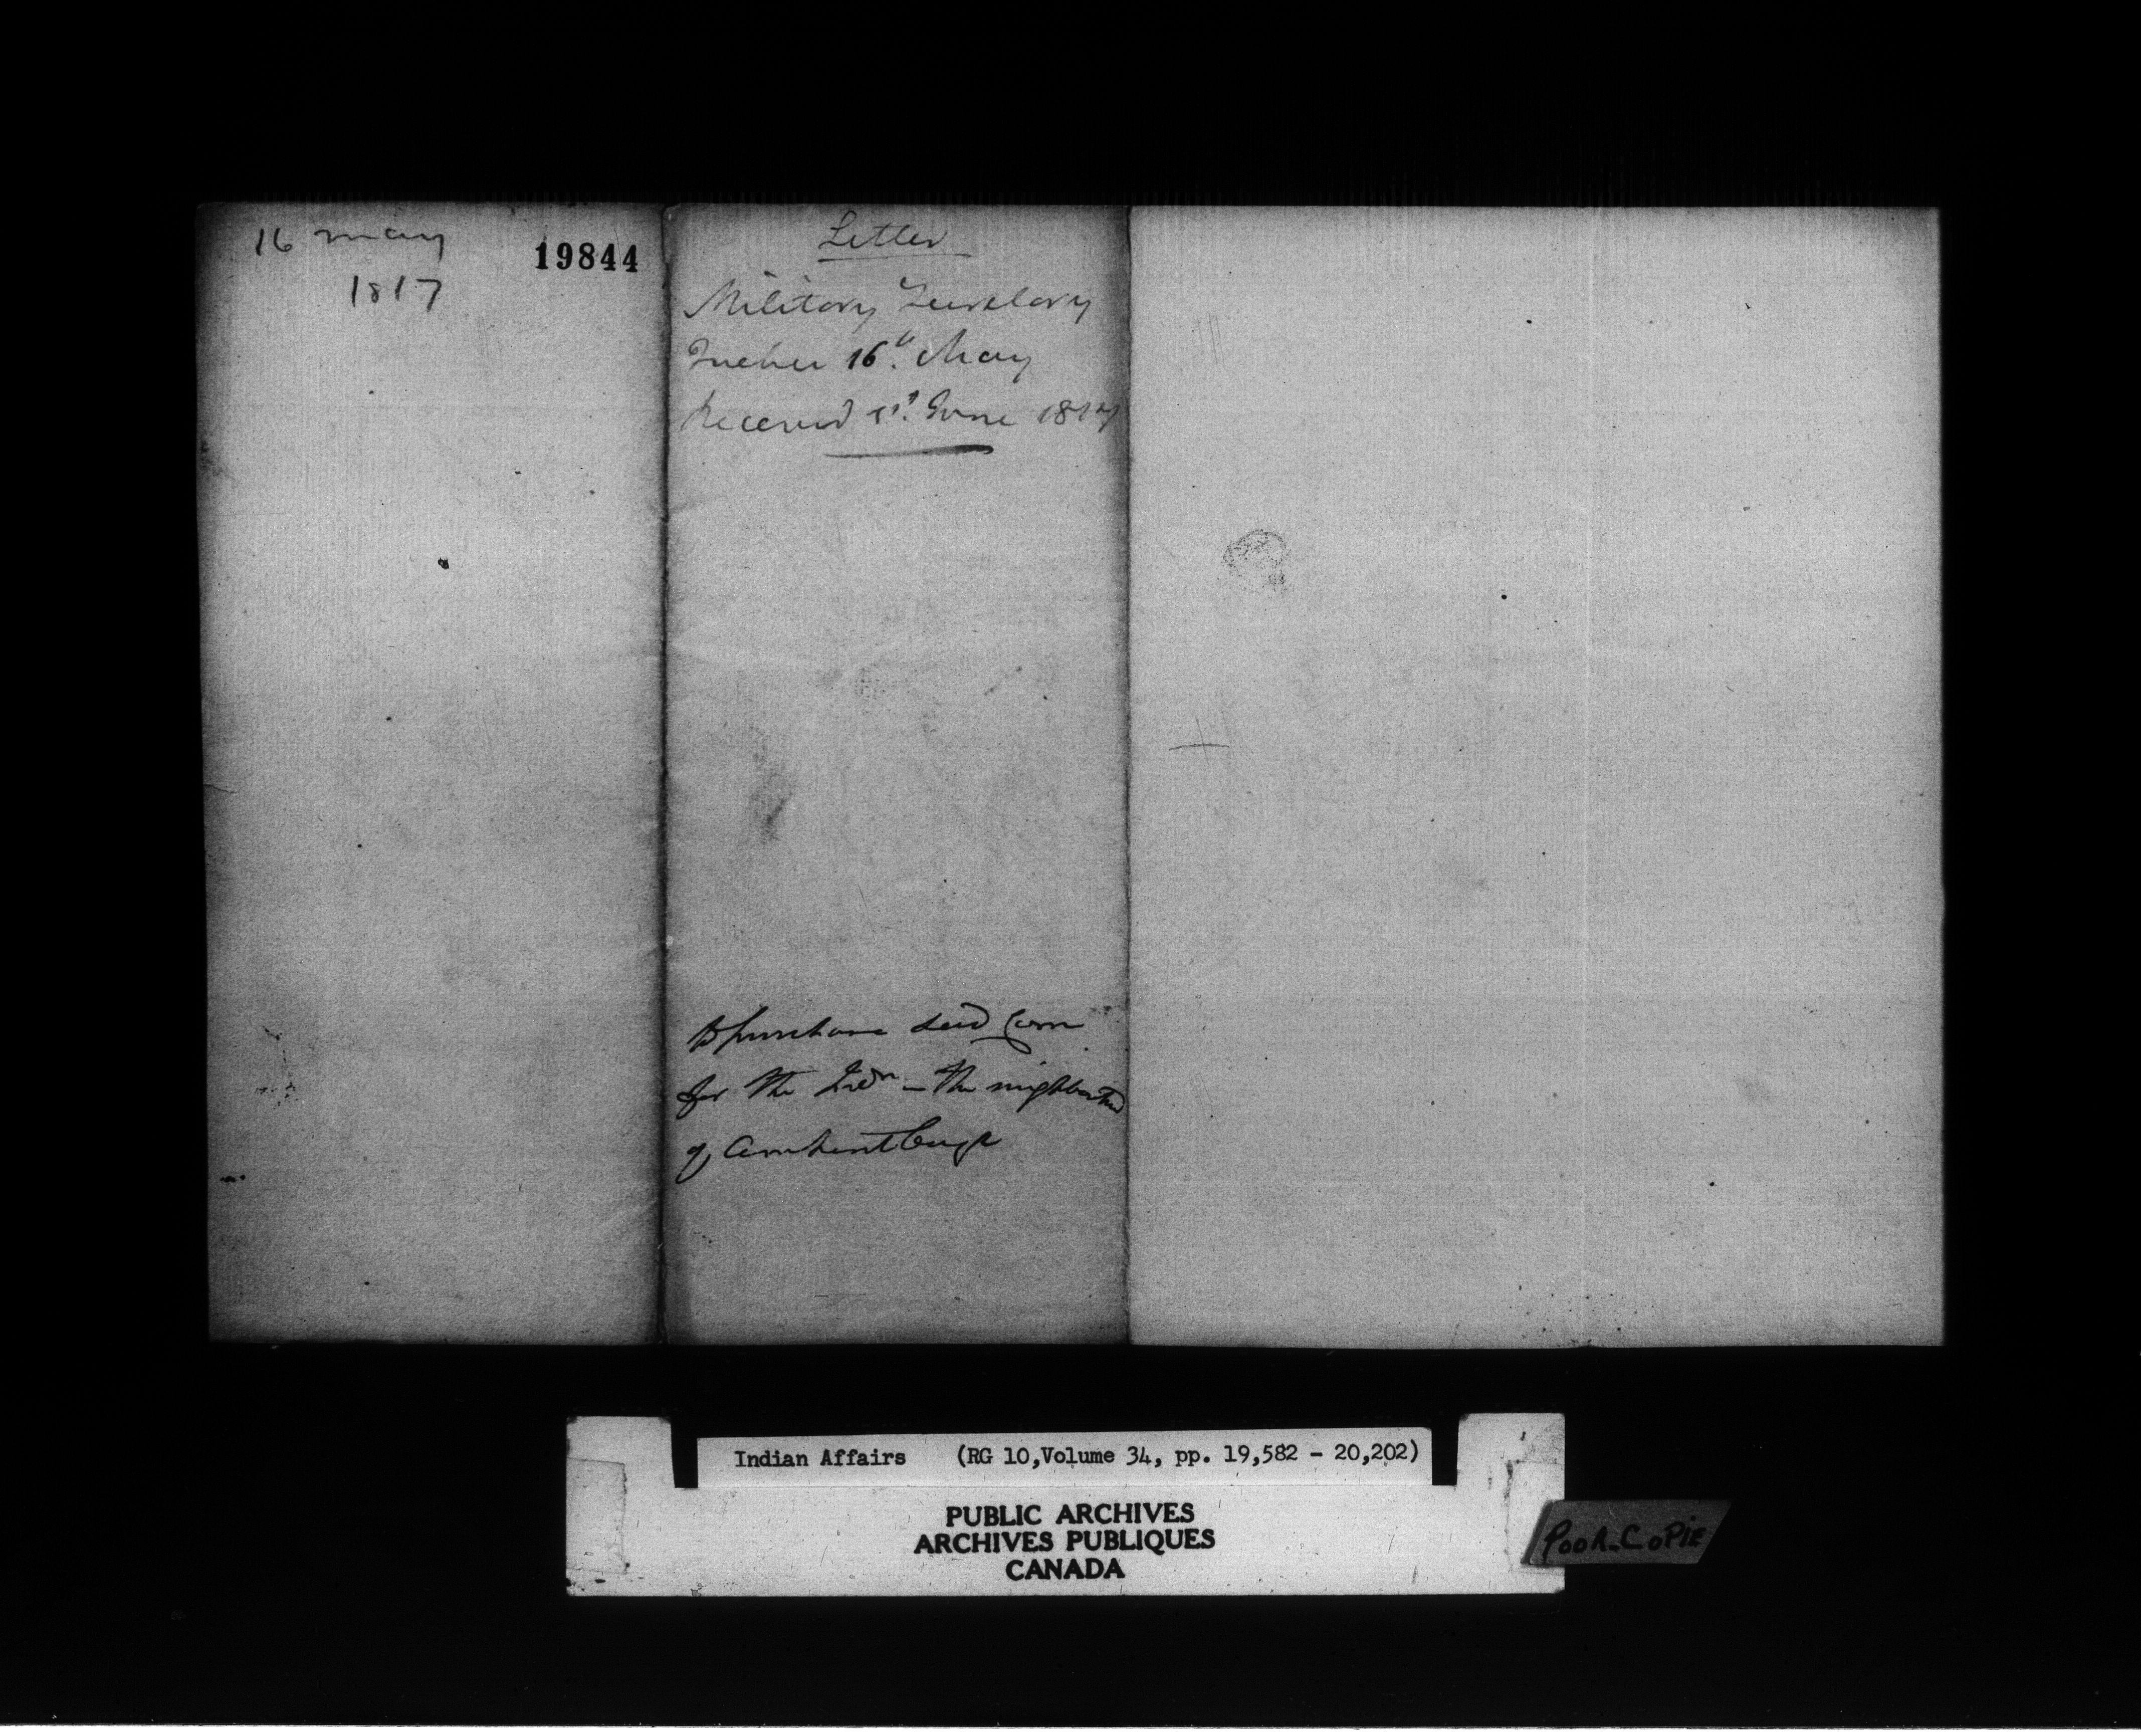 16 may
1817
19844
Letter
Military Secretary
Quebec 16th May
Received 1st June 1817
To purchase seed Corn
for the Indns in the neighborhood
of Amherstburgh
Indian Affairs (RG 10, Volume 34, pp. 19,582 - 20,202)
PUBLIC ARCHIVES
ARCHIVES PUBLIQUES
CANADA
POOR-COPIE